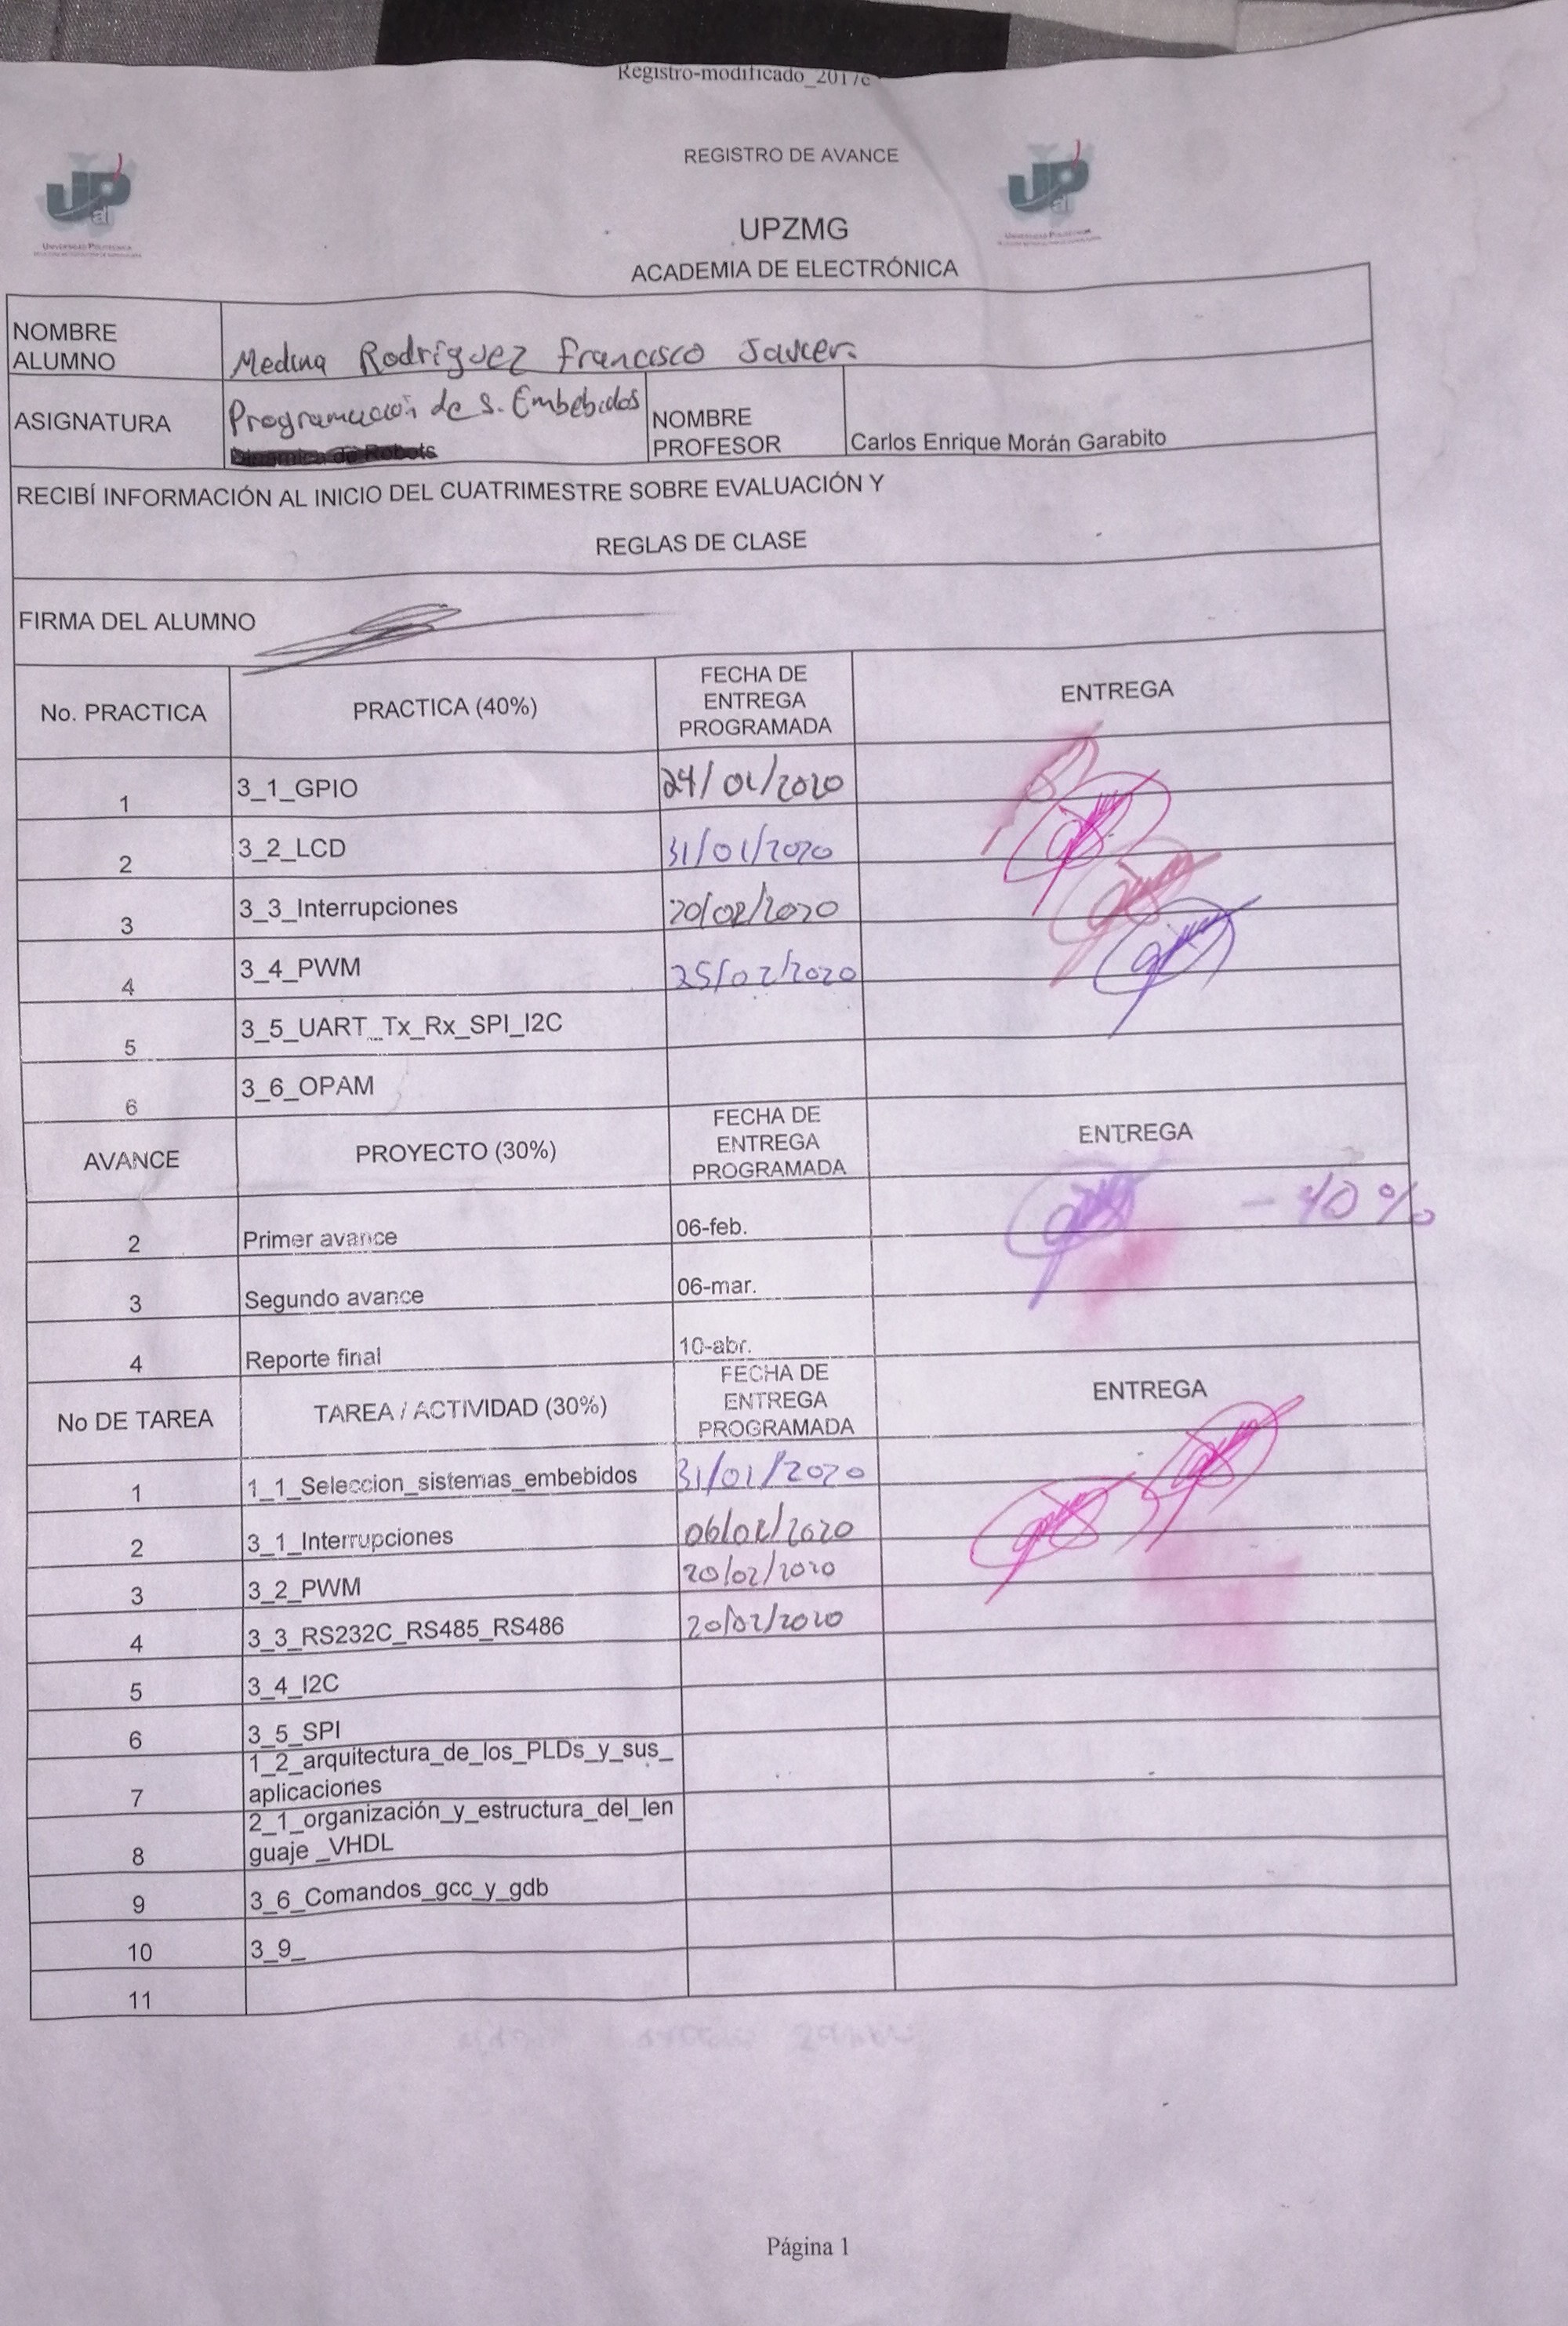 Registro-modificado_2017c
REGISTRO DE AVANCE
UPZMG
ACADEMIA DE ELECTRÓNICA
UP
al
UNIVERSIDAD POLITÉCNICA
UP
al
UNIVERSIDAD POLITÉCNICA
NOMBRE
ALUMNO
Medina Rodríguez Francisco Javier.
ASIGNATURA
Programación de s. Embebidos
Dinamica de Robots
NOMBRE
PROFESOR
Carlos Enrique Morán Garabito
RECIBÍ INFORMACIÓN AL INICIO DEL CUATRIMESTRE SOBRE EVALUACIÓN Y
REGLAS DE CLASE
FIRMA DEL ALUMNO
No. PRACTICA
PRACTICA (40%)
FECHA DE
ENTREGA
PROGRAMADA
ENTREGA
1 3_1_GPIO 24/01/2020
2 3_2_LCD 31/01/2020
3 3_3_Interrupciones 20/02/2020
4 3_4_PWM 25/02/2020
5 3_5_UART_Tx_Rx_SPI_I2C
6 3_6_OPAM
AVANCE
PROYECTO (30%)
FECHA DE
ENTREGA
PROGRAMADA
ENTREGA
2 Primer avance 06-feb. - 40 %
3 Segundo avance 06-mar.
4 Reporte final 10-abr.
No DE TAREA
TAREA / ACTIVIDAD (30%)
FECHA DE
ENTREGA
PROGRAMADA
ENTREGA
1 1_1_Seleccion_sistemas_embebidos 31/01/2020
2 3_1_Interrupciones 06/02/2020
3 3_2_PWM 20/02/2020
4 3_3_RS232C_RS485_RS486 20/02/2020
5 3_4_I2C
6 3_5_SPI
7 1_2_arquitectura_de_los_PLDs_y_sus_
aplicaciones
8 2_1_organización_y_estructura_del_len
guaje _VHDL
9 3_6_Comandos_gcc_y_gdb
10 3_9_
11
Página 1